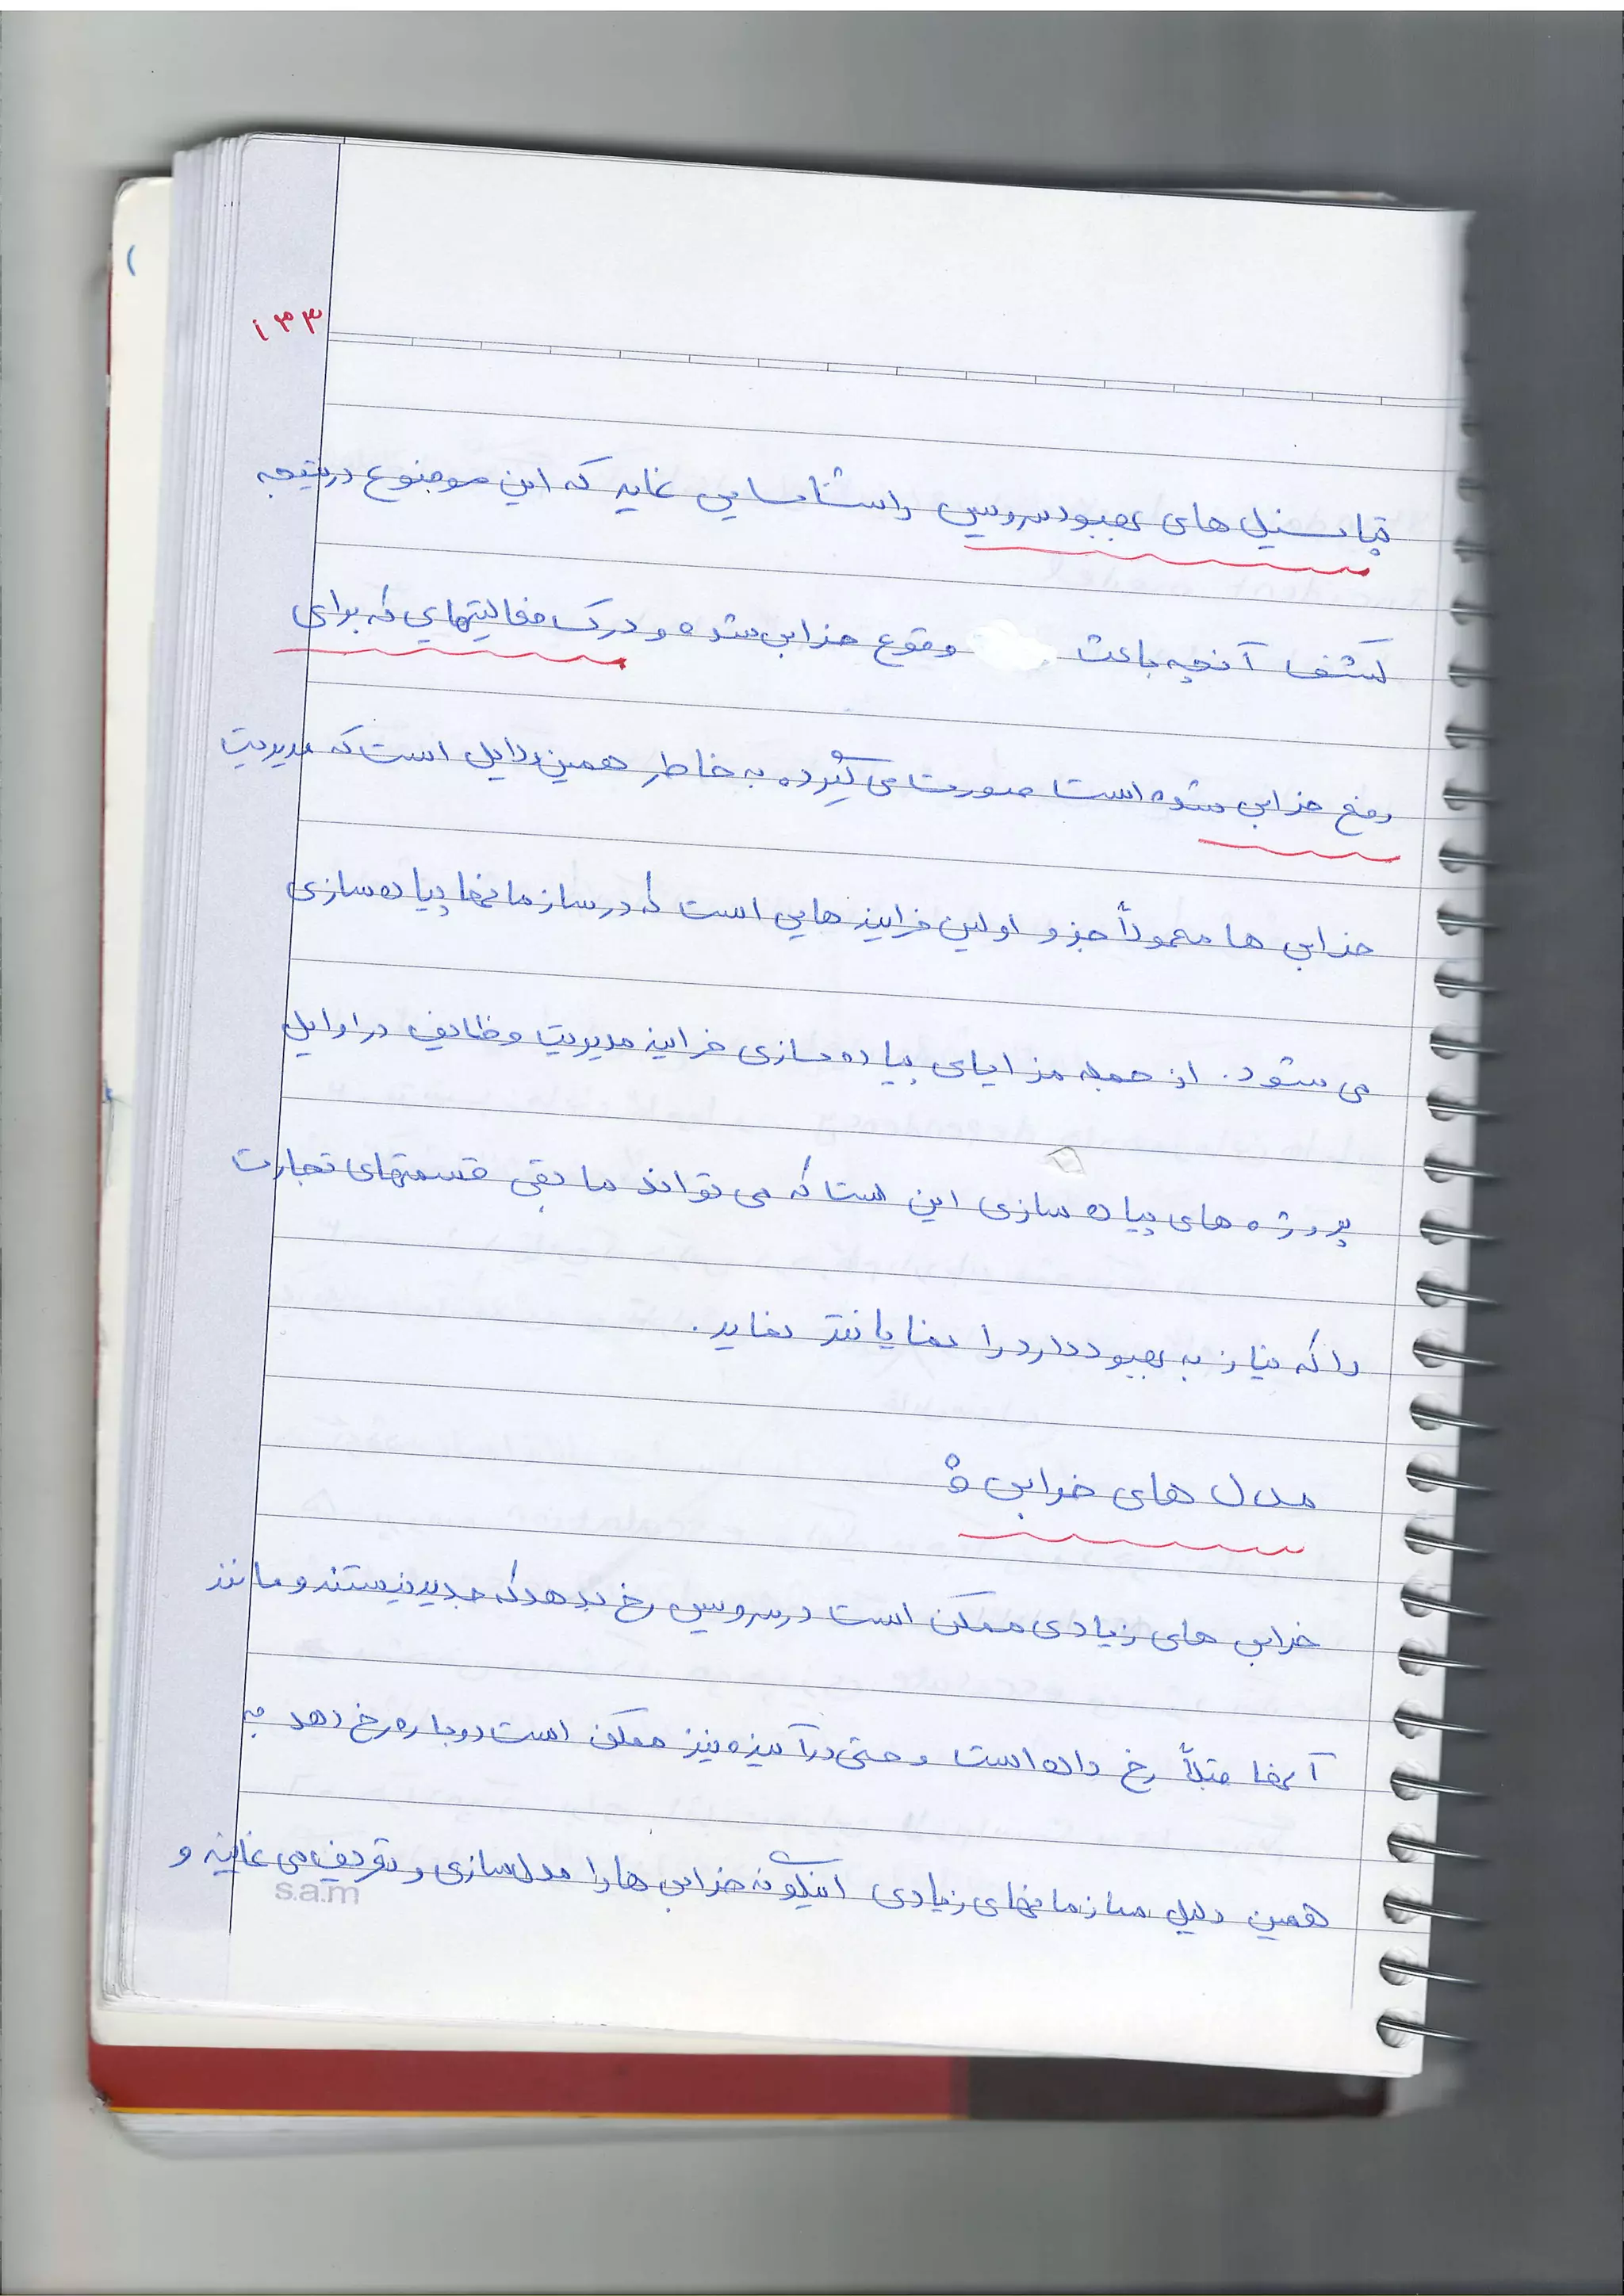 ۱۳۳
پتانسیل های بهبود سرویس را شناسایی نماید که این موضوع در نتیجه
کشف آنچه باعث وقوع خرابی شده و درک فعالیتهایی که برای
رفع خرابی شده است صورت می گیرد. و به خاطر همین دلایل است که مدیریت
خرابی ها معمولاً جزو اولین فرایند هایی است که در سازمانها پیاده سازی
می شود. از جمله مزایای پیاده سازی فرایند مدیریت وظایف در اوایل
پروژه های پیاده سازی این است که می تواند مابقی قسمتهای تجارت
را که نیاز به بهبود دارد را نمایانتر نماید.
مدل های خرابی :
خرابی های زیادی ممکن است در سرویس رخ بدهد که جدید نیستند و مانند
آنها قبلاً رخ داده است و حتی در آینده نیز ممکن است دوباره رخ دهد به
همین دلیل سازمانهای زیادی اینگونه خرابی ها را مدل سازی و تعریف می نمایند و
s.a.m